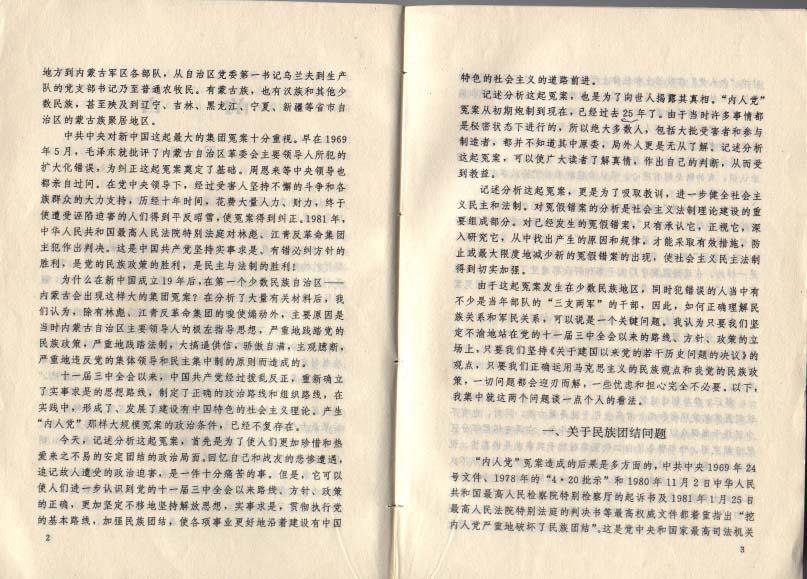 地方到内蒙古军区各部队，从自治区党委第一书记乌兰夫到生产
队的党支部书记乃至普通农牧民。有蒙古族，也有汉族和其他少
数民族，甚至殃及到辽宁、吉林、黑龙江、宁夏、新疆等省市自
治区的蒙古族聚居地区。
中共中央对新中国这起最大的集团冤案十分重视。早在1969
年5月，毛泽东就批评了内蒙古自治区革委会主要领导人所犯的
扩大化错误，为纠正这起冤案奠定了基础，周恩来等中央领导也
都亲自过问。在党中央领导下，经过受害人坚持不懈的斗争和各
族群众的大力支持，历经十年时间，花费大量人力、财力，终于
使遭受诬陷迫害的人们得到平反昭雪，使冤案得到纠正。1981年，
中华人民共和国最高人民法院特别法庭对林彪、江青反革命集团
主犯作出判决。这是中国共产党坚持实事求是、有错必纠方针的
胜利，是党的民族政策的胜利，是民主与法制的胜利！
为什么在新中国成立19年后，在第一个少数民族自治区——
内蒙古会出现这样大的集团冤案？在分析了大量有关材料后，我
们认为，除有林彪、江青反革命集团的唆使煽动外，主要原因是
当时内蒙古自治区主要领导人的极左指导思想，严重地践踏党的
民族政策，严重地践踏法制，大搞逼供信，骄傲自满，主观臆断，
严重地违反党的集体领导和民主集中制的原则而造成的。
十一届三中全会以来，中国共产党经过拨乱反正，重新确立
了实事求是的思想路线，制定了正确的政治路线和组织路线，在
实践中，形成了、发展了建设有中国特色的社会主义理论。产生
“内人党”那样大规模冤案的政治条件，已经不复存在。
今天，记述分析这起冤案，首先是为了使人们更加珍惜和热
爱来之不易的安定团结的政治局面。回忆自己和战友的悲惨遭遇，
追记故人遭受的政治迫害，是一件十分痛苦的事。但是，它可以
使人们进一步认识到党的十一届三中全会以来路线、方针、政策
的正确，更加坚定不移地坚持解放思想，实事求是，贯彻执行党
的基本路线，加强民族团结，使各项事业更好地沿着建设有中国
2
特色的社会主义的道路前进。
记述分析这起冤案，也是为了向世人揭露其真相。“内人党”
冤案从初期炮制到现在，已经过去25年了。由于当时许多事情都
是秘密状态下进行的，所以绝大多数人，包括大批受害者和参与
制造者，都并不知道其中原委，局外人更是无从了解。记述分析
这起冤案，可以使广大读者了解真情，作出自己的判断，从而受
到教益。
记述分析这起冤案，更是为了吸取教训，进一步健全社会主
义民主和法制。对冤假错案的分析是社会主义法制理论建设的重
要组成部分。对已经发生的冤假错案，只有承认它，正视它，深
入研究它，从中找出产生的原因和规律，才能采取有效措施，防
止或最大限度地减少新的冤假错案的出现，使社会主义民主法制
得到切实加强。
由于这起冤案发生在少数民族地区，同时犯错误的人当中有
不少是当年部队的“三支两军”的干部，因此，如何正确理解民
族关系和军民关系，可以说是一个关键问题。我认为只要我们坚
定不渝地站在党的十一届三中全会以来的路线、方针、政策的立
场上，只要我们坚持《关于建国以来党的若干历史问题的决议》的
观点，只要我们正确运用马克思主义的民族观点和我党的民族政
策，一切问题都会迎刃而解，一些忧虑和担心完全不必要。以下，
我集中就这两个问题谈一点个人的看法。
一、关于民族团结问题
“内人党”冤案造成的后果是多方面的，中共中央1969年24
号文件、1978年的“4·20批示”和1980年11月2日中华人民
共和国最高人民检察院特别检察厅的起诉书及1981年1月25日
最高人民法院特别法庭的判决书等最高权威文件都着重指出“挖
内人党严重地破坏了民族团结”。这是党中央和国家最高司法机关
3